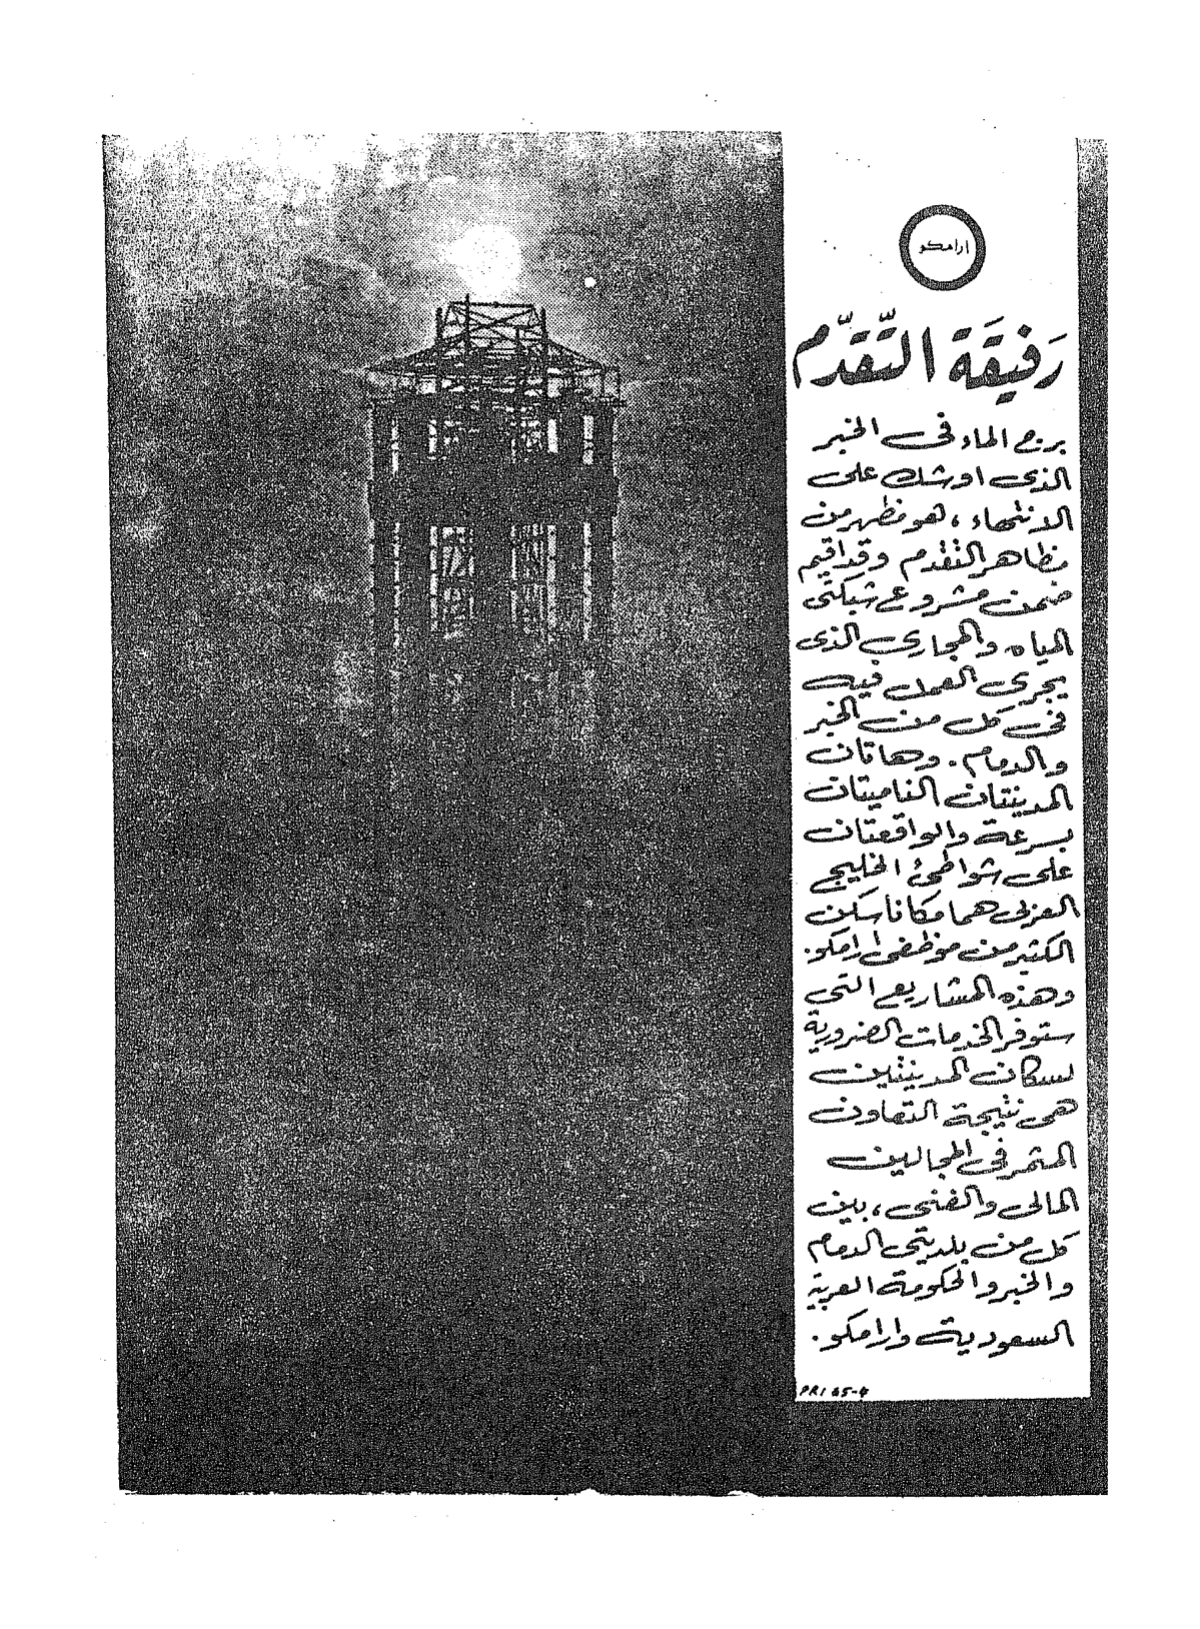 ارامكو
رَفيقَة التّقدّم
برج الماء في الخبر
الذي اوشك على
الانتهاء ، هو مظهر من
مظاهر التقدم وقد اقيم
ضمن مشروع شبكتي
المياه والمجاري الذي
يجري العمل فيه
في كل من الخبر
والدمام . وهاتان
المدينتان الناميتان
بسرعة والواقعتان
على شواطئ الخليج
العربي هما مكانا سكن
الكثير من موظفي ارامكو .
وهذه المشاريع التي
ستوفر الخدمات الضرورية
لسكان المدينتين
هي نتيجة التعاون
المثمر في المجالين
المالي والفني ، بين
كل من بلديتي الدمام
والخبر والحكومة العربية
السعودية وارامكو .
PRI 65-4